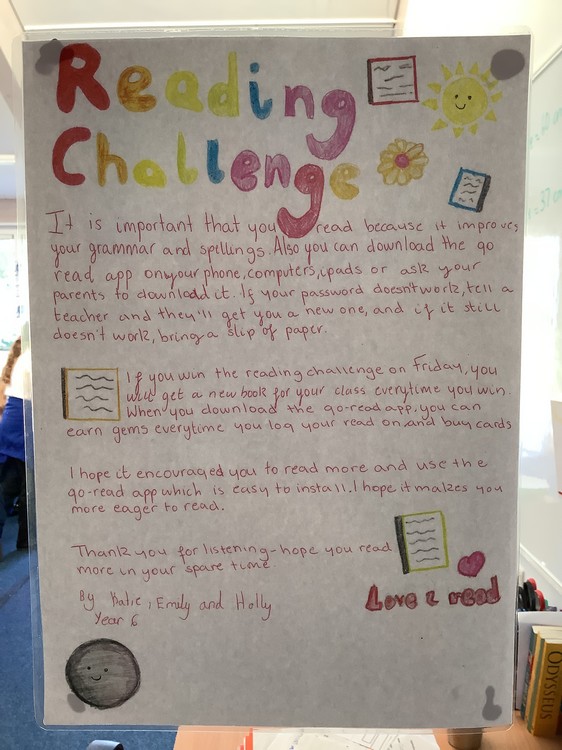 Reading
Challenge
It is important that you read because it improves
your grammar and spellings. Also you can download the go
read app on your phone, computers, ipads or ask your
parents to download it. If your password doesn't work, tell a
teacher and they'll get you a new one, and if it still
doesn't work, bring a slip of paper.
If you win the reading challenge on Friday, you
will get a new book for your class everytime you win.
When you download the go-read app, you can
earn gems everytime you log your read on, and buy cards
I hope it encouraged you to read more and use the
go-read app which is easy to install. I hope it makes you
more eager to read.
Thank you for listening - hope you read
more in your spare time
By Katie, Emily and Holly
Year 6
Love 2 read
ODYSSEUS